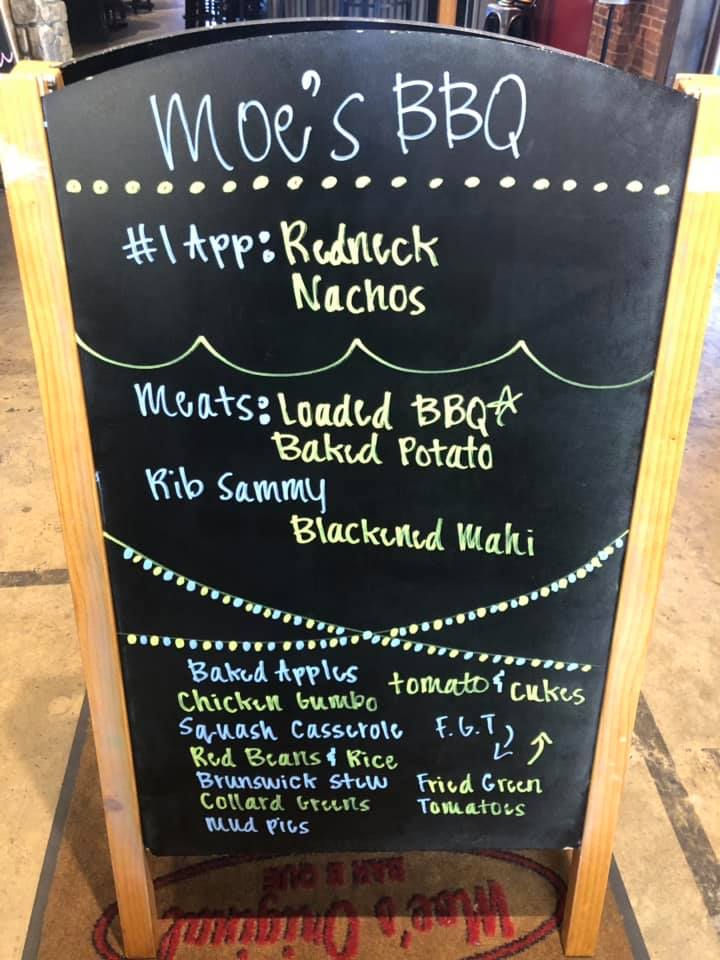 Moe's BBQ
#1 App: Redneck
Nachos
Meats: Loaded BBQ
Baked Potato
Rib Sammy
Blackened Mahi
Baked Apples
Chicken Gumbo
Squash Casserole
Red Beans & Rice
Brunswick Stew
Collard Greens
Mud pies
tomato & cukes
F.G.T
Fried Green
Tomatoes
Moe's Original
BAR B QUE